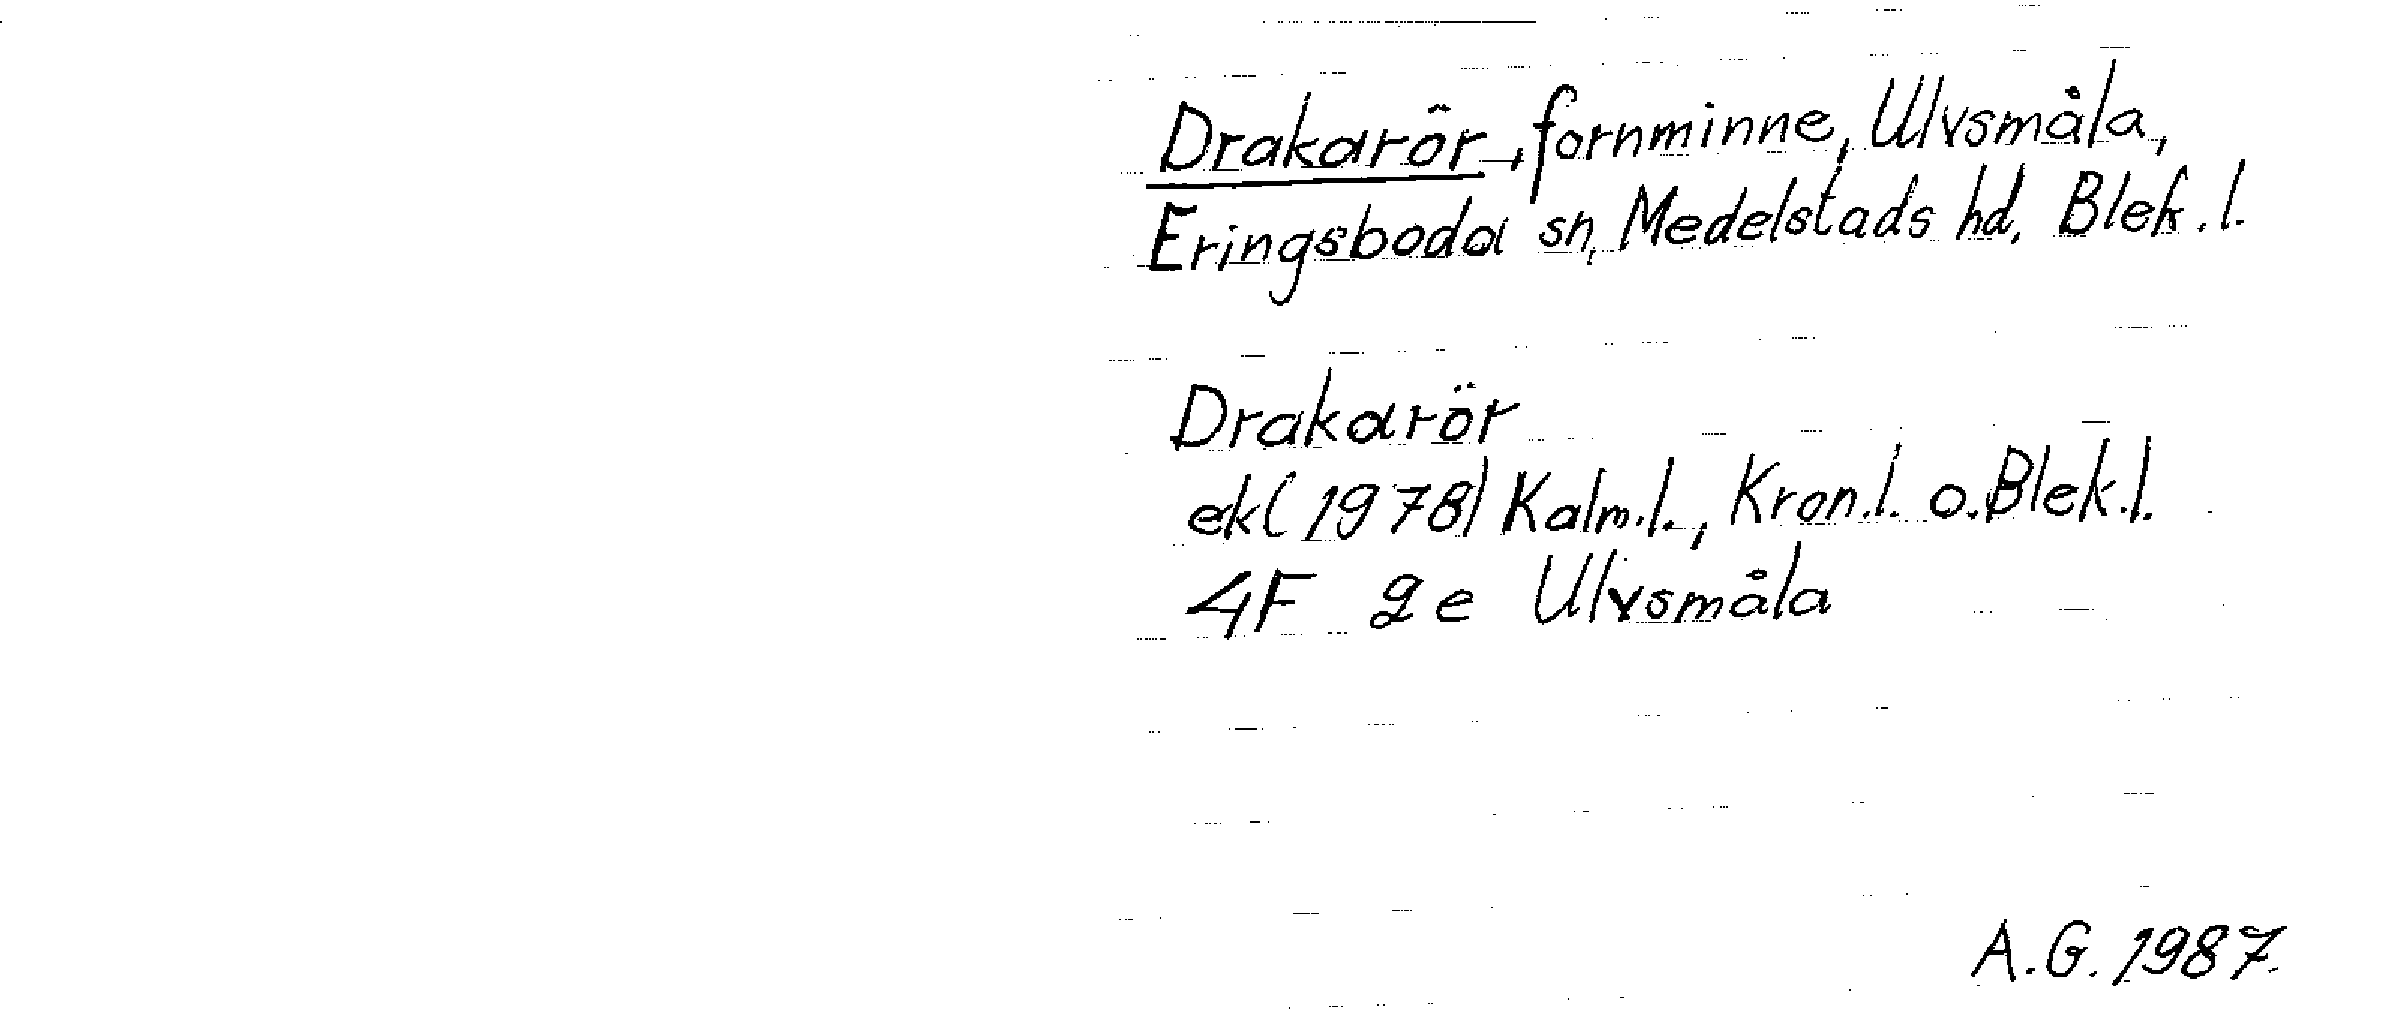 Drakarör, fornminne, Ulvsmåla,
Eringsboda sn, Medelstads hd, Blek.l.
Drakarör
ek(1978) Kalm.l., Kron.l. o. Blek.l.
4F 2e Ulvsmåla
A.G. 1987.